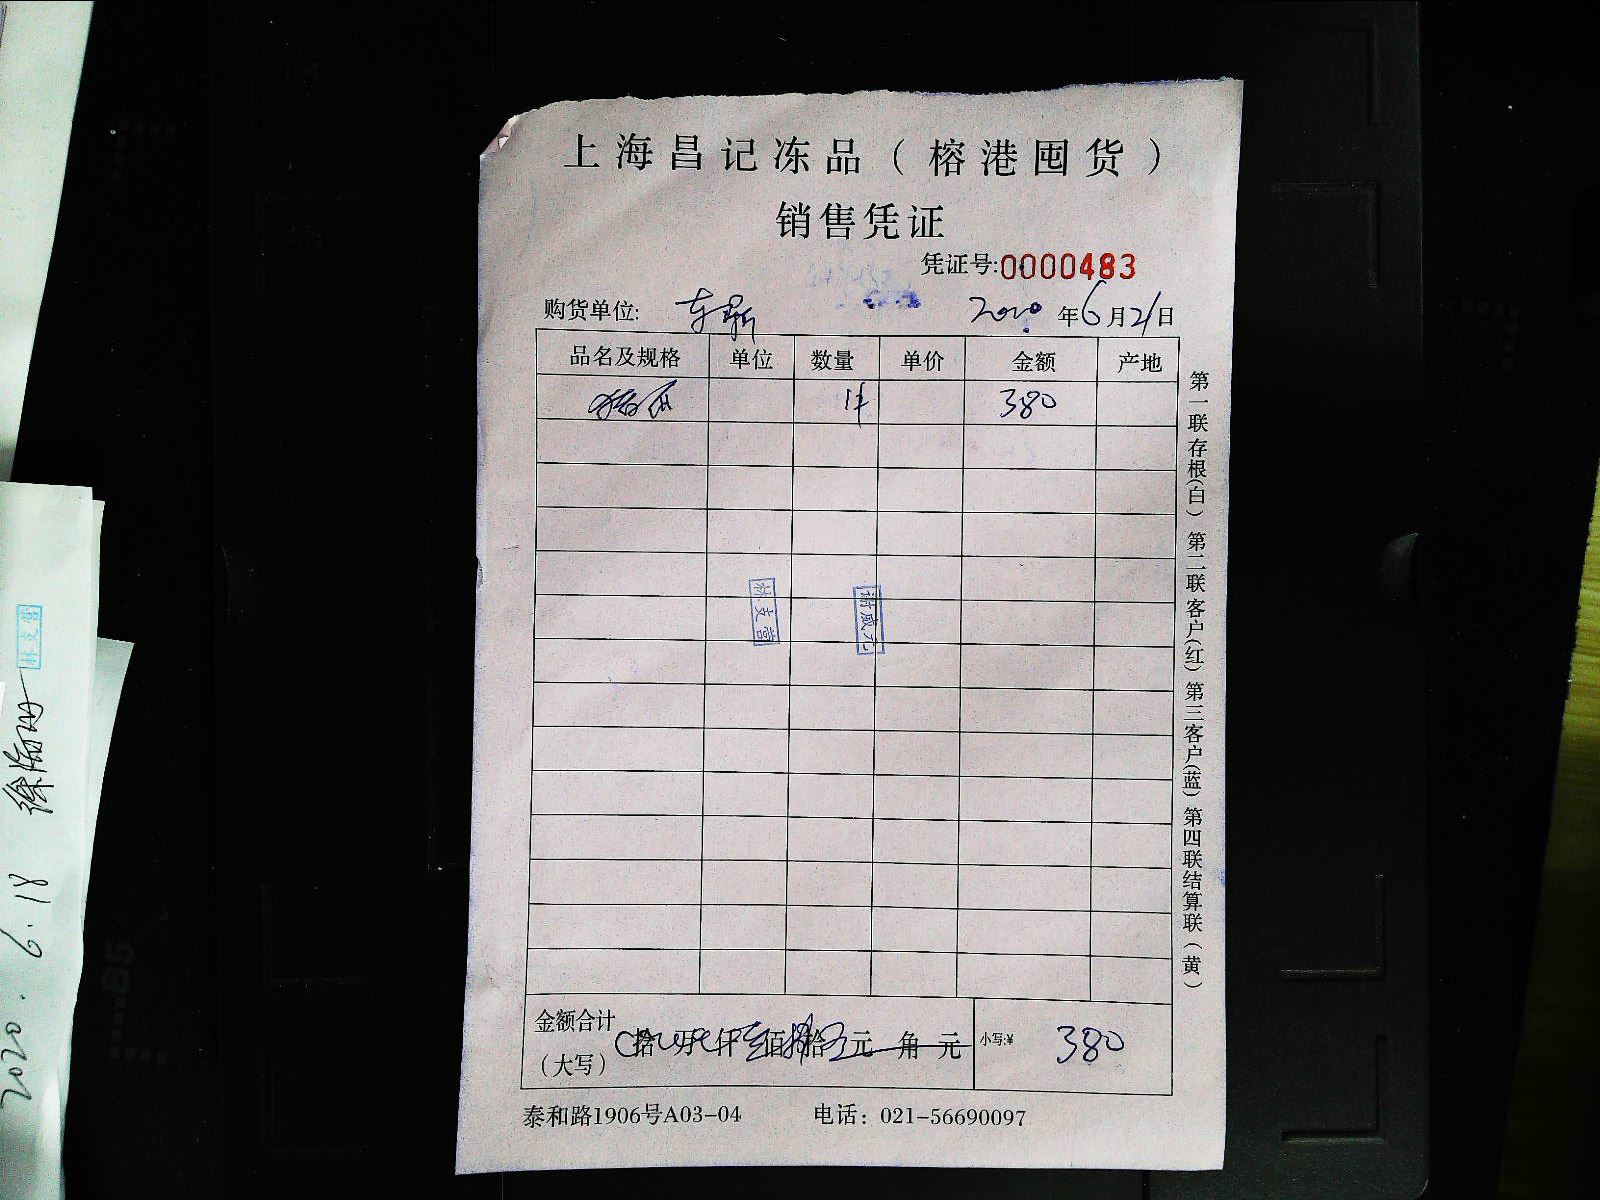 上海昌记冻品（榕港囤货）
销售凭证
凭证号:0000483
购货单位: 东新 2020年6月21日
品名及规格 单位 数量 单价 金额 产地
1件 380
林支营
谢成允
金额合计
（大写） 拾 万 仟 佰 拾 元 角 元 小写:¥ 380
泰和路1906号A03-04 电话：021-56690097
第一联存根(白) 第二联客户(红) 第三客户(蓝) 第四联结算联（黄）
林支营
2020.6.18
B5